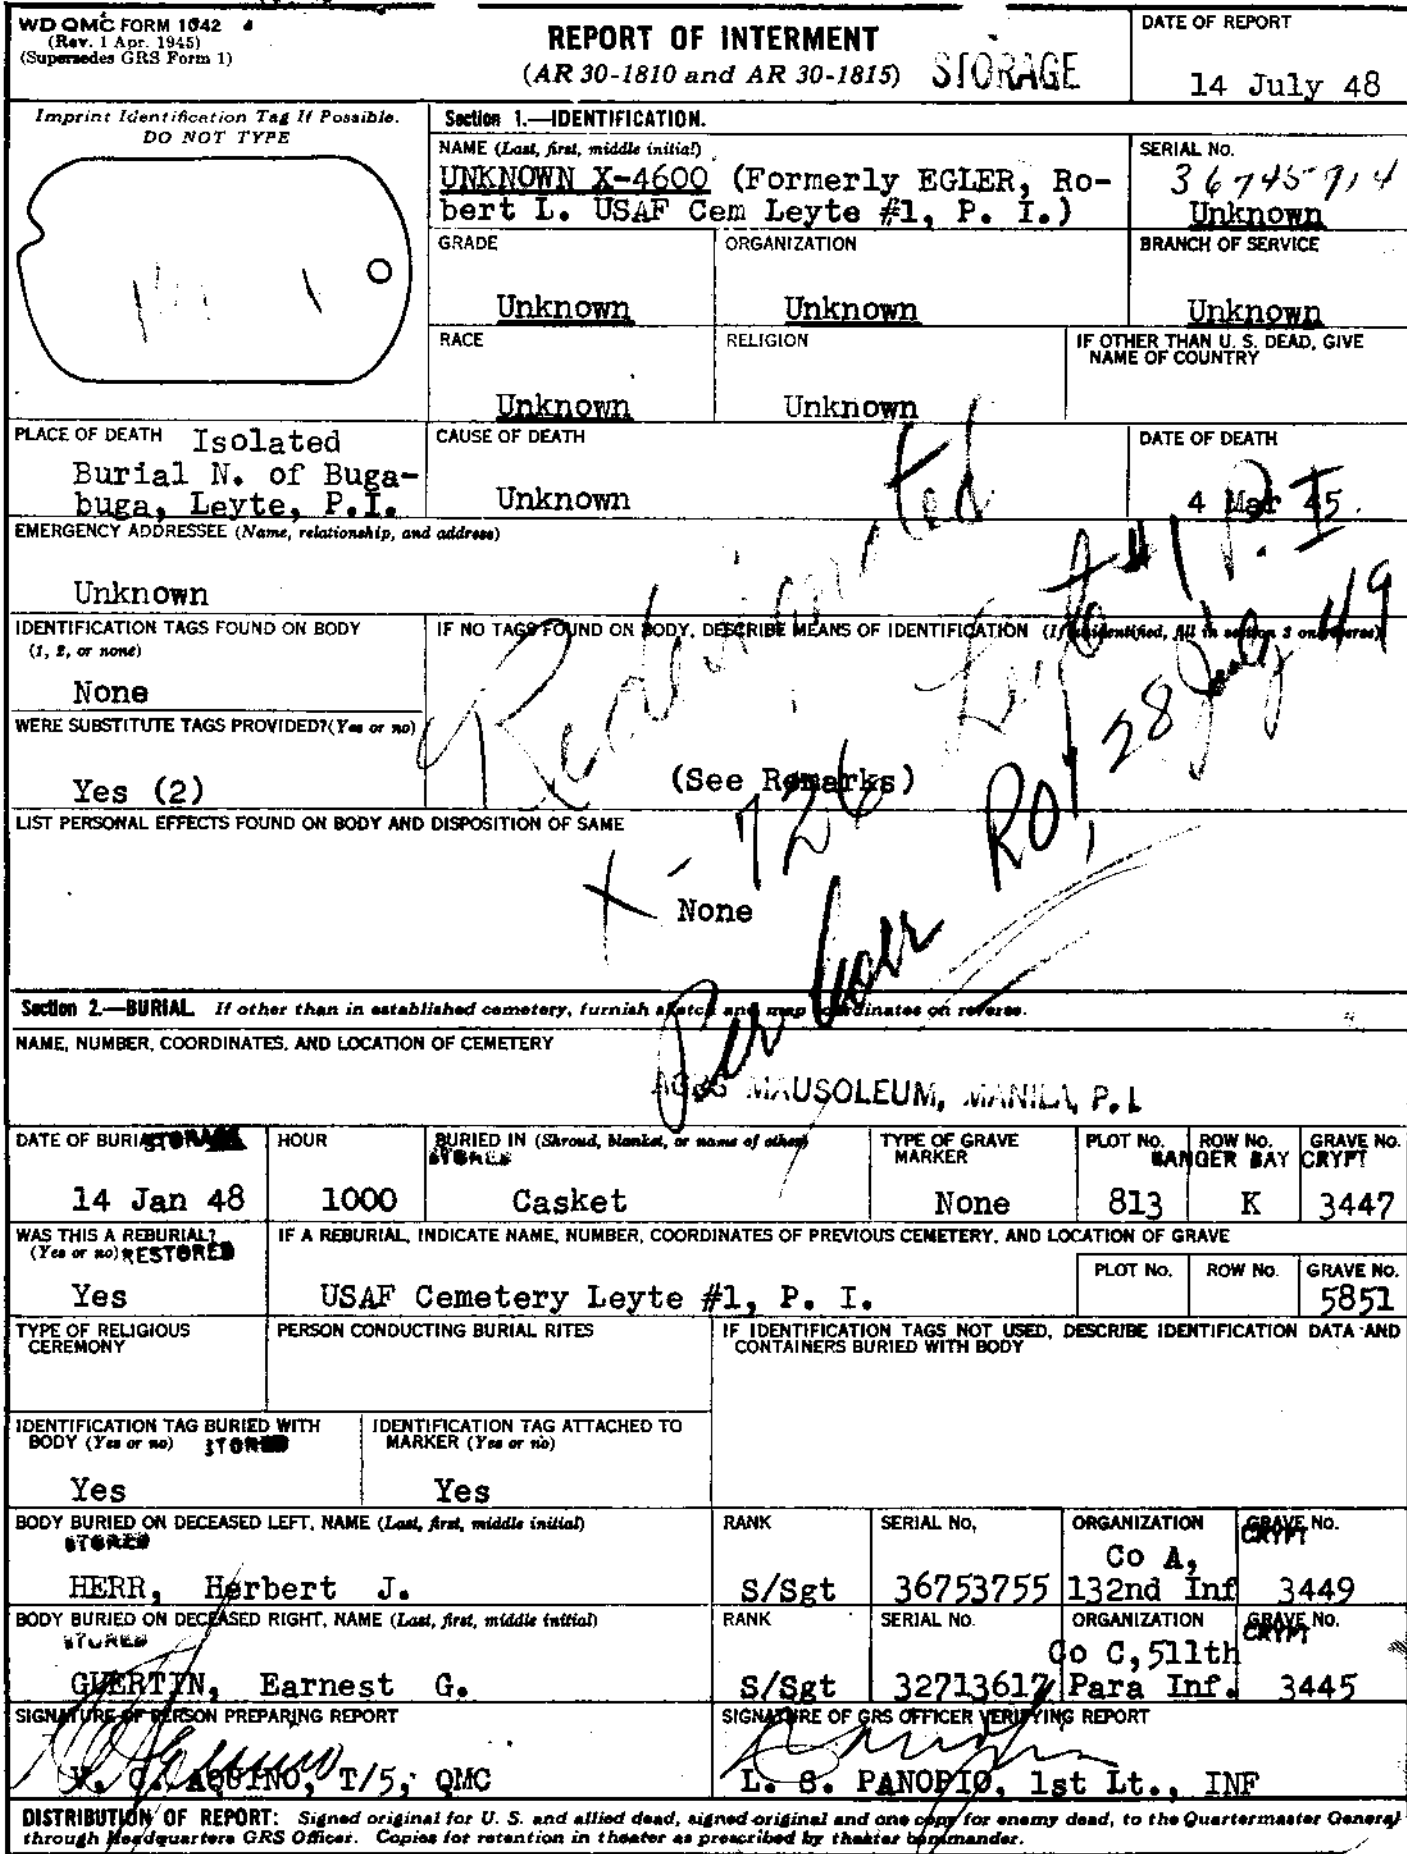 WD QMC FORM 1042
(Rev. 1 Apr. 1945)
(Supersedes GRS Form 1)
REPORT OF INTERMENT
(AR 30-1810 and AR 30-1815)
STORAGE
DATE OF REPORT
14 July 48
Imprint Identification Tag If Possible.
DO NOT TYPE
Section 1.—IDENTIFICATION.
NAME (Last, first, middle initial)
UNKNOWN X-4600 (Formerly EGLER, Ro-
bert L. USAF Cem Leyte #1, P. I.)
SERIAL No.
36745914
Unknown
GRADE
Unknown
ORGANIZATION
Unknown
BRANCH OF SERVICE
Unknown
RACE
Unknown
RELIGION
Unknown
IF OTHER THAN U. S. DEAD, GIVE
NAME OF COUNTRY
PLACE OF DEATH Isolated
Burial N. of Buga-
buga, Leyte, P.I.
CAUSE OF DEATH
Unknown
DATE OF DEATH
4 Mar 45
EMERGENCY ADDRESSEE (Name, relationship, and address)
Unknown
IDENTIFICATION TAGS FOUND ON BODY
(1, 2, or none)
None
IF NO TAGS FOUND ON BODY, DESCRIBE MEANS OF IDENTIFICATION (If unidentified, fill in section 3 on reverse)
(See Remarks)
WERE SUBSTITUTE TAGS PROVIDED? (Yes or no)
Yes (2)
Redesignated
X-726 Leyte #1 P. I.
Per Corr RO, 28 July 49
LIST PERSONAL EFFECTS FOUND ON BODY AND DISPOSITION OF SAME
None
Section 2.—BURIAL. If other than in established cemetery, furnish sketch and map coordinates on reverse.
NAME, NUMBER, COORDINATES, AND LOCATION OF CEMETERY
AGRS MAUSOLEUM, MANILA, P. I.
DATE OF BURIAL STORAGE
14 Jan 48
HOUR
1000
BURIED IN (Shroud, blanket, or name of other)
STORED
Casket
TYPE OF GRAVE
MARKER
None
PLOT No.
HANGER
813
ROW No.
BAY
K
GRAVE No.
CRYPT
3447
WAS THIS A REBURIAL?
(Yes or no) RESTORED
Yes
IF A REBURIAL, INDICATE NAME, NUMBER, COORDINATES OF PREVIOUS CEMETERY, AND LOCATION OF GRAVE
USAF Cemetery Leyte #1, P. I.
PLOT No.
ROW No.
GRAVE No.
5851
TYPE OF RELIGIOUS
CEREMONY
PERSON CONDUCTING BURIAL RITES
IF IDENTIFICATION TAGS NOT USED, DESCRIBE IDENTIFICATION DATA AND
CONTAINERS BURIED WITH BODY
IDENTIFICATION TAG BURIED WITH
BODY (Yes or no) STORED
Yes
IDENTIFICATION TAG ATTACHED TO
MARKER (Yes or no)
Yes
BODY BURIED ON DECEASED LEFT, NAME (Last, first, middle initial)
STORED
HERR, Herbert J.
RANK
S/Sgt
SERIAL No.
36753755
ORGANIZATION
Co A,
132nd Inf
GRAVE No.
CRYPT
3449
BODY BURIED ON DECEASED RIGHT, NAME (Last, first, middle initial)
STORED
GUERTIN, Earnest G.
RANK
S/Sgt
SERIAL No.
32713617
ORGANIZATION
Co C, 511th
Para Inf.
GRAVE No.
CRYPT
3445
SIGNATURE OF PERSON PREPARING REPORT
V. C. AQUINO, T/5, QMC
SIGNATURE OF GRS OFFICER VERIFYING REPORT
L. S. PANOPIO, 1st Lt., INF
DISTRIBUTION OF REPORT: Signed original for U. S. and allied dead, signed original and one copy for enemy dead, to the Quartermaster General
through Headquarters GRS Officer. Copies for retention in theater as prescribed by theater commander.